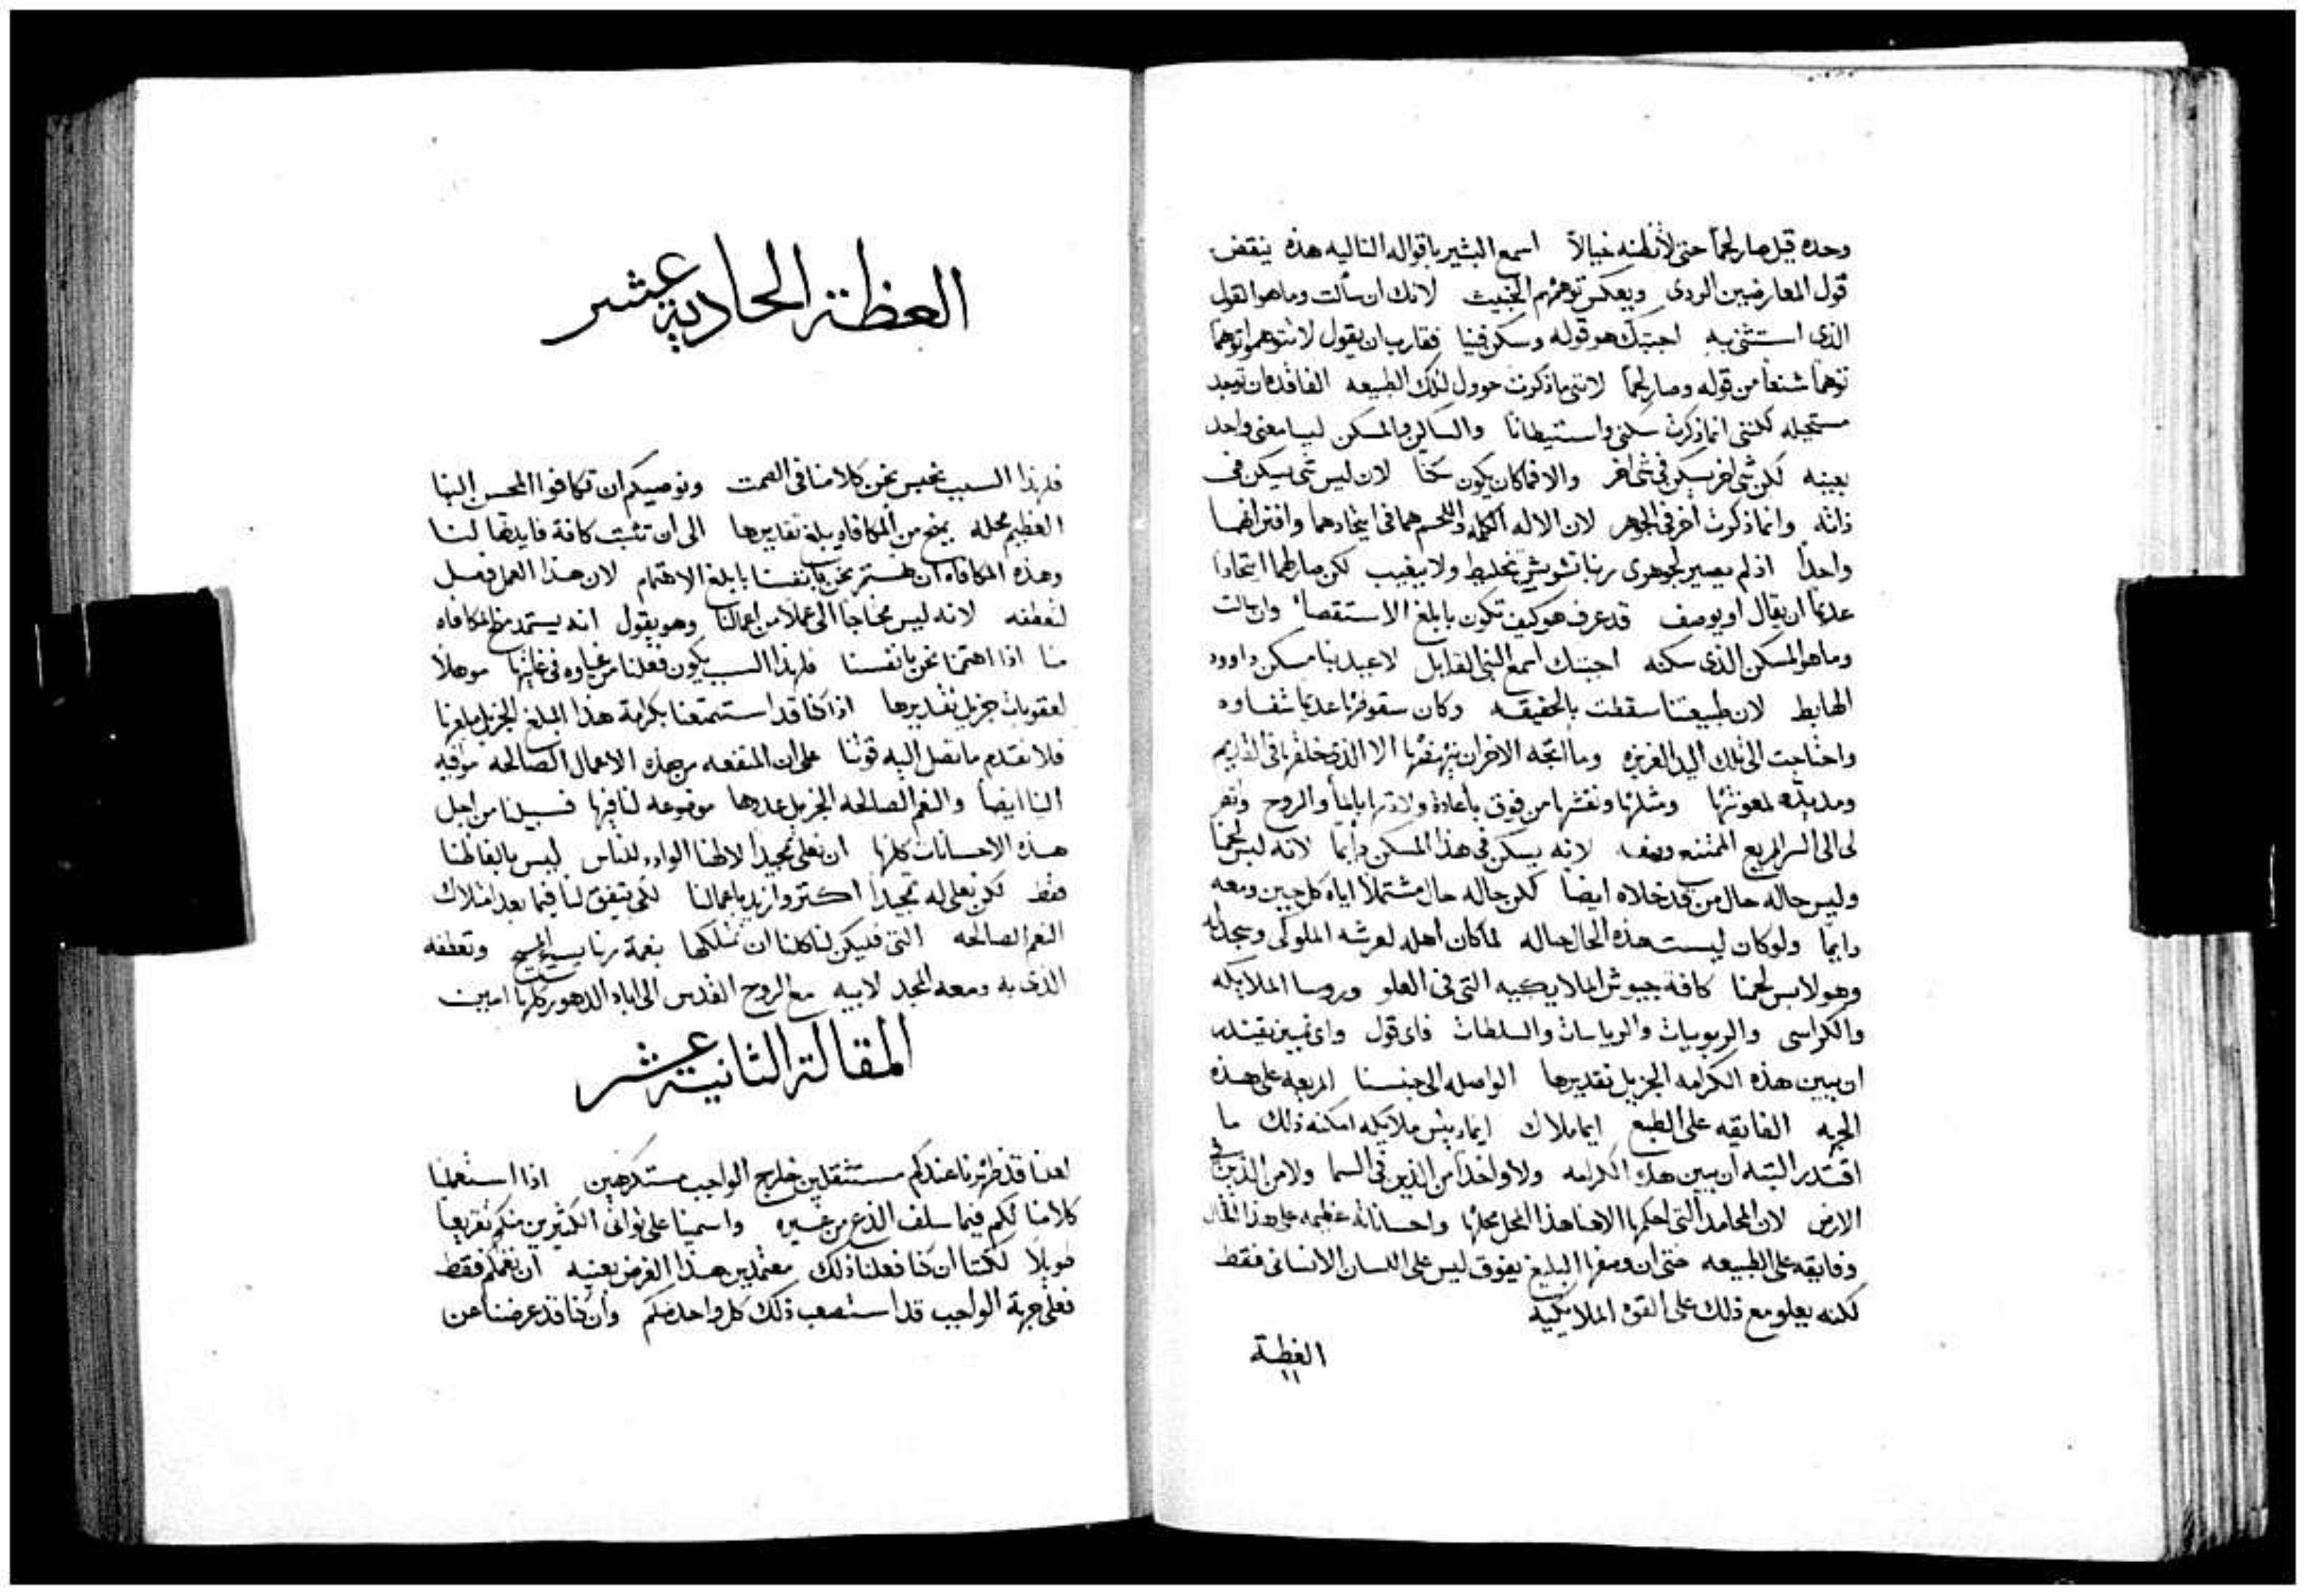 وحده قيل صار لحماً حتى لا تظنه خيالاً اسمع البشير باقواله التاليه هذه ينقض
قول المعارضين الردى ويعكس توهمهم الخبيث لانك ان سألت وما هو القول
الذى استثنى به اجبتك هو قوله وسكن فينا فقارب ان يقول لا تتوهموا توهماً
توهماً شنعاً من قوله وصار لحماً لاننى ما ذكرت حوول لتلك الطبيعه الفاقده ان توجد
مستحيله لكننى انما ذكرت سكنى واستيطانا والساكن والمسكن ليسا معنى واحد
بعينه لكن شى اخر يسكن فى شى اخر والا فما كان يكون سكنا لان ليس شى يسكن فى
ذاته وانما ذكرت اخر فى الجوهر لان الاله الكلمه واللحم هما فى اتحادهما واقترانهما
واحداً اذ لم يصير لجوهرى ربنا تشويش تخليط ولا يغيب لكن صار لهما اتحادا
عديماً ان يقال او يوصف قد عرف هو كيف تكون بابلغ الاستقصا وان سالت
وما هو المسكن الذى سكنه اجبتك اسمع النبى القايل لاعيد بنا مسكن داوود
الهابط لان طبيعتنا سقطت بالحقيقه وكان سقوطها عديماً شفاوه
واحتاجت الى تلك اليد العزيزه وما اتجه الاخر ان ينهضها الا الذى خلقها فى القديم
ومد يده لمعونتها ومثلها ونقشها من فوق باعادة ولادتها بالماً والروح وانظر
لى الى السر المريع الممتنع وصفه لانه يسكن فى هذا المسكن دايماً لانه لبس لحمنا
وليس حاله حال من قد خلاه ايضا لكن حاله حال مشتملاً اياه كل حين ومعه
دايماً ولو كان ليست هذه الحال حاله لما كان اهله لعرشه الملوكى وسجد له
وهو لابس لحمنا كافة جيوش الملايكيه التى فى العلو وروسا الملايكه
والكراسى والربوبيات والرياسات والسلطات فاى قول واى تمييز يقتدر
ان يبين هذه الكرامه الجزيل تقديرها الواصله الى جنسنا المريعه على هذه
الجهه الفايقه على الطبع ايما ملاك ايما رييس ملايكه امكنه ذلك ما
اقتدر البته ان يبين هذه الكرامه ولا واحداً من الذين فى السما ولا من الذين فى
الارض لان المحامد التى احكمها الاهنا هذا المحل محلها واحساناته عظيمه على هذا المثال
وفايقه على الطبيعه حتى ان وصفها البليغ يفوق ليس على اللسان الانسانى فقط
لكنه يعلو مع ذلك على القوه الملايكيه
العظة
١١
العظة الحادية عشر
فلهذا السبب نحبس نحن كلامنا فى الصمت ونوصيكم ان تكافوا المحسن الينا
العظيم محله بمنح من المكافاه يبلغ تقديرها الى ان تثبت كافة فايدتها لنا
وهذه المكافاه ان نهتم نحن بانفسنا بابلغ الاهتمام لان هذا العمل فعل
لتعطفه لانه ليس محتاجاً الى عملاً من اعمالنا وهو يقول انه يستمد منح المكافاه
منا اذا اهتمنا نحن بانفسنا فلهذا السبب يكون فعلنا من غباوه فى غايتها موهلاً
لعقوبات جزيل تقديرها اذا كنا قد استمتعنا بكرامة هذا المبلغ الجزيل مبلغها
فلا نقدم ما تصل اليه قوتنا على ان المنفعه من هذه الاعمال الصالحه موافيه
الينا ايضا والنعم الصالحه الجزيل عددها موضوعه لنا فيها فسبيلنا من اجل
هذه الاحسانات كلها ان نعلى تمجيداً لالهنا الواد للناس ليس بالفاظنا
فقط لكن نعلى له تمجيداً اكثر وازيد باعمالنا لكى يتفق لنا فيما بعد امتلاك
النعم الصالحه التى فليكن لنا كلنا ان نمتلكها بنعمة ربنا يسوع المسيح وتعطفه
الذى به ومعه المجد لابيه مع الروح القدس الى اباد الدهور كلها امين
المقالة الثانية عشر
لعلنا قد ظهرنا عندكم مستثقلين خارج الواجب مستكرهين اذا استعملنا
كلامنا لكم فيما سلف الذع من غيره واسمينا على توانى الكثيرين منكم تقريعا
طويلاً لكننا ان كنا فعلنا ذلك معتمدين هذا الغرض بعينه ان نغمكم فقط
فعلى جهة الواجب قد استصعب ذلك كل واحد منكم وان كنا قد عرضنا عن